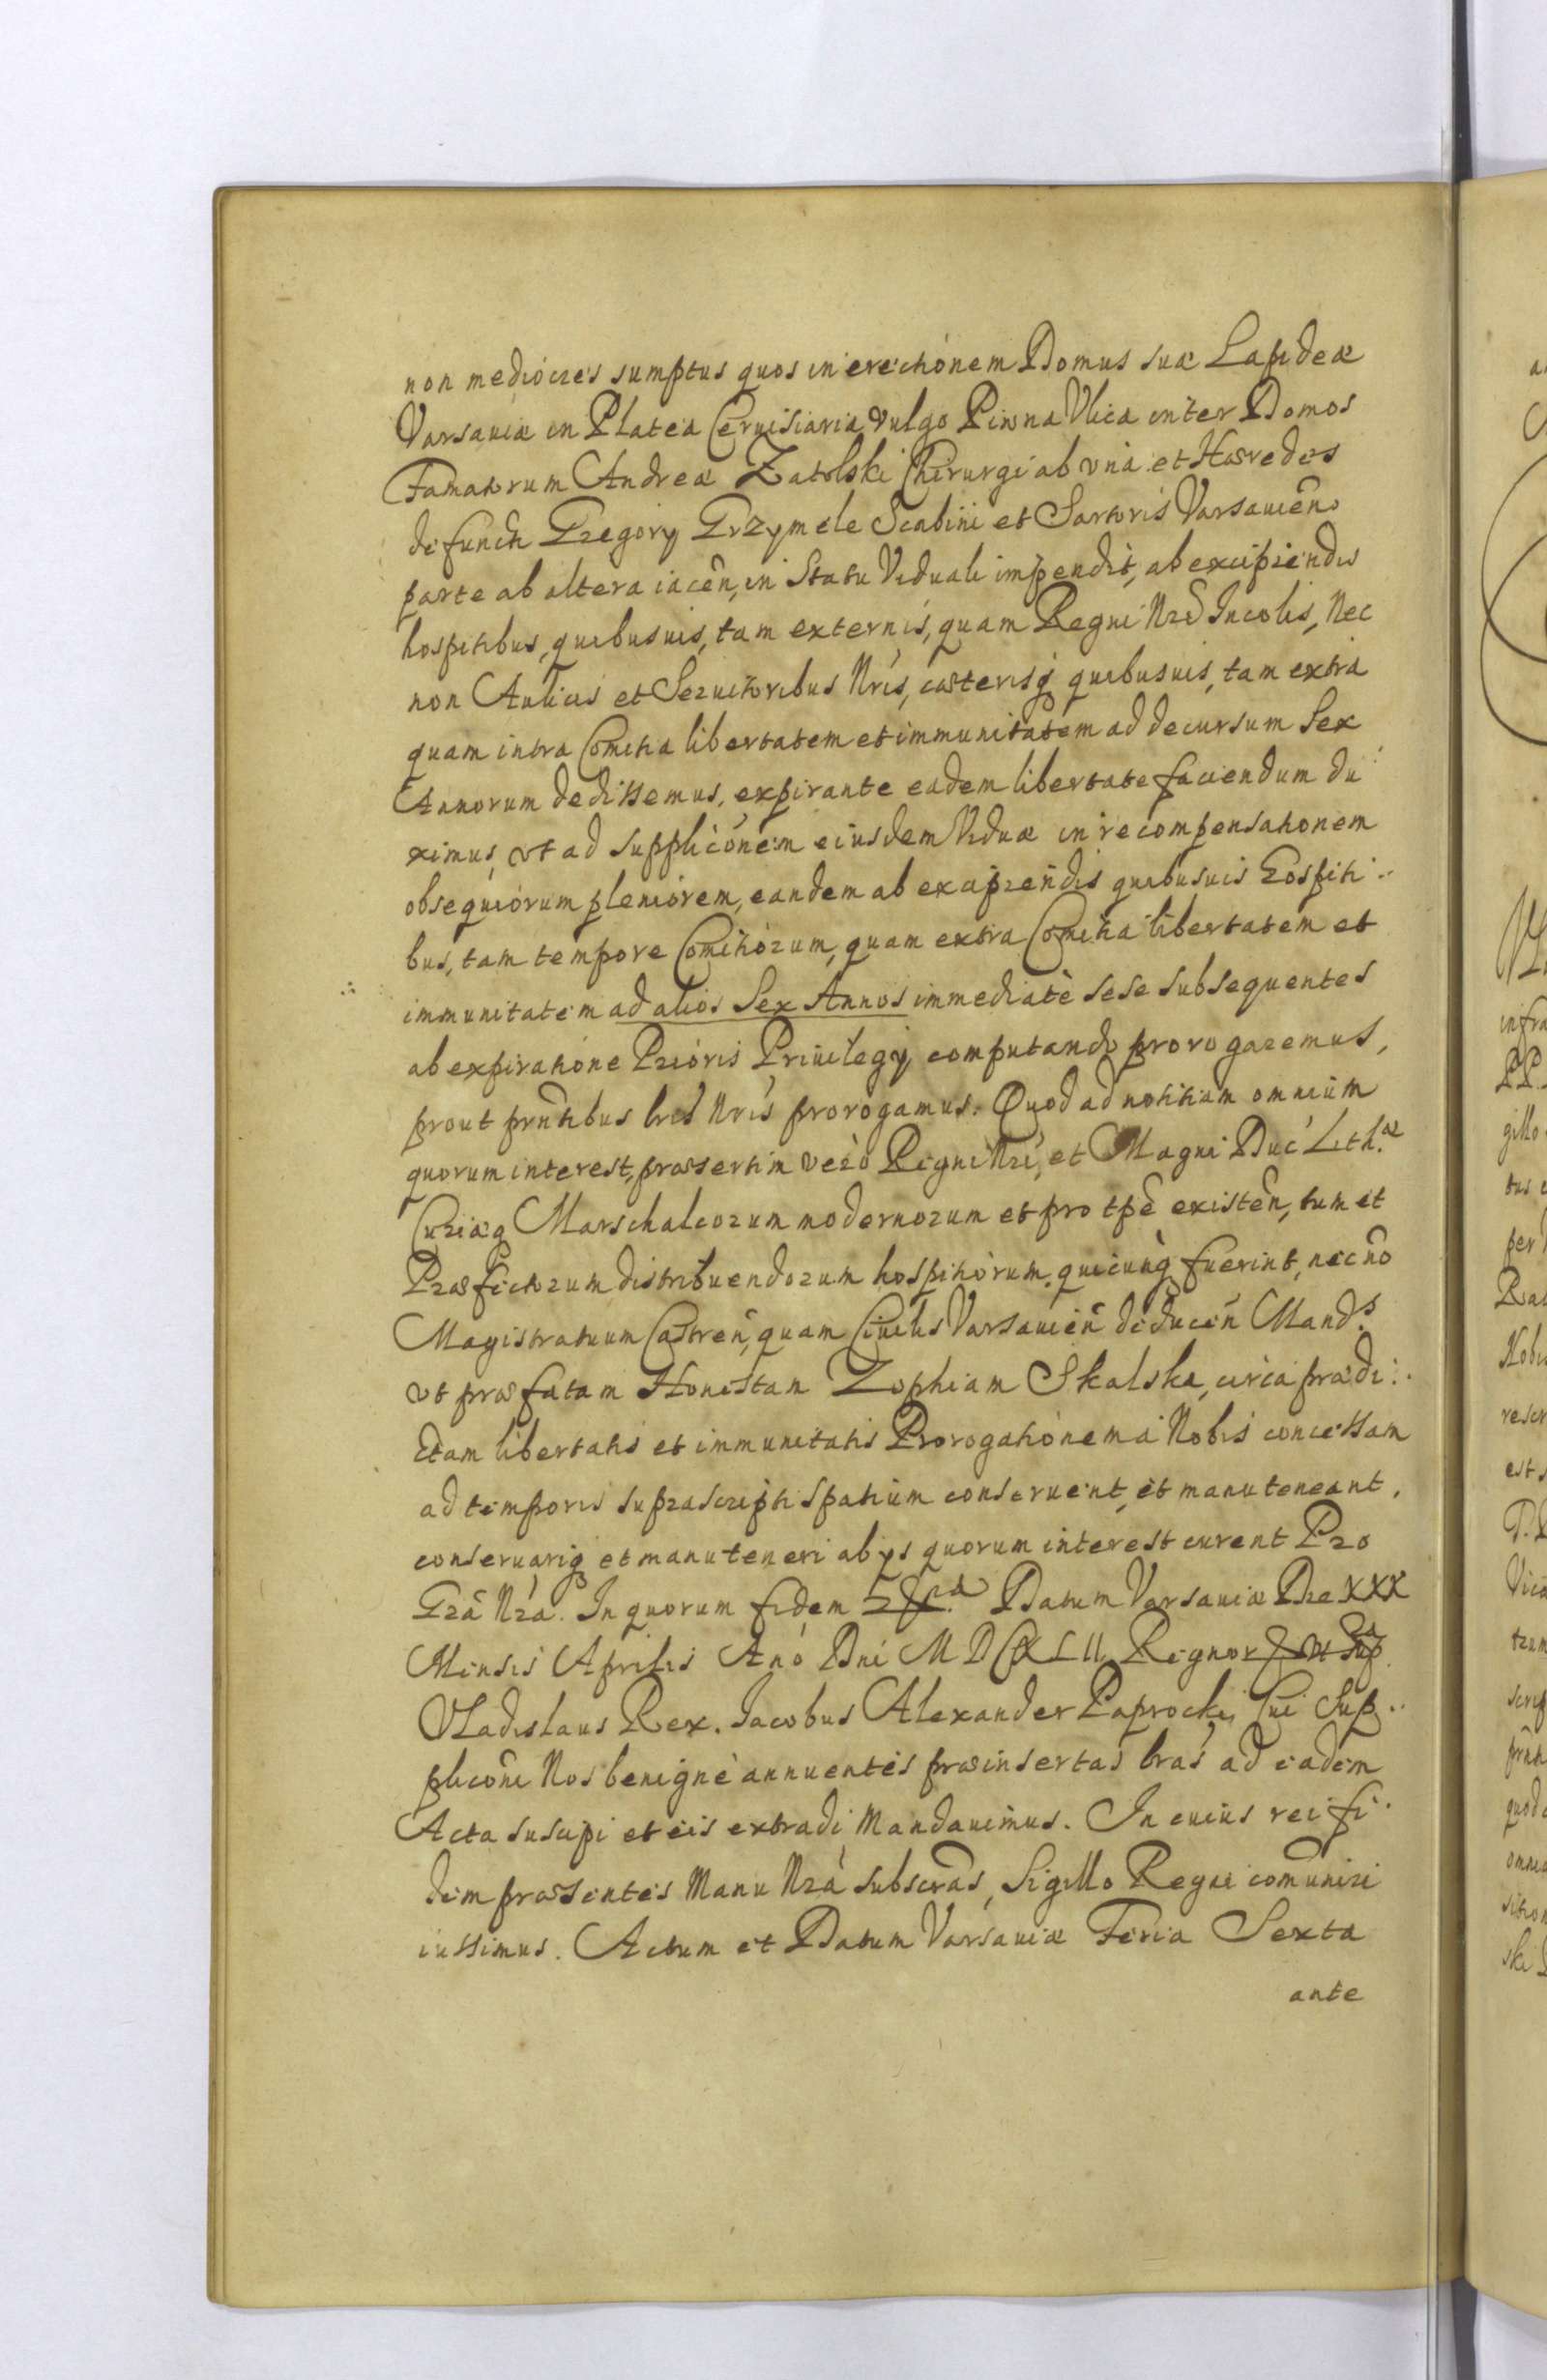 non mediocres sumptus quos in erectionem Domus suæ Lapideæ
Varsaviæ in Platea Cervisiaria vulgo Piwna Vlica inter Domos
Famatorum Andreæ Zatolski Chirurgi ab vna et Hæredes
defuncti Gregory Grzymele Scabini et Sartoris Varsavien̄
parte ab altera iacen̄, in Statu Viduali impendit, ab excipiendis
hospitibus, quibusuis, tam externis, quam Regni Nr̄i Incolis, Nec
non Aulicis et Seruitoribus Nr̄is, cæterisq̨ quibusuis, tam extra
quam intra Comitia libertatem et immunitatem ad decursum Sex
Annorum dedissemus, expirante eadem libertate faciendum du:
ximus, vt ad supplicōnem eiusdem Viduæ in recompensationem
obsequiorum pleniorem, eandem ab excipiendis quibusuis Hospiti:
bus, tam tempore Comitiorum, quam extra Comitia libertatem et
immunitatem ad alios Sex Annos immediatè sese subsequentes
ab expiratione Prioris Priuilegy computando prorogaremus,
prout prn̄tibus lr̄is Nr̄is prorogamus. Quod ad notitiam omnium
quorum interest, præsertim verò Regni Nr̄i, et Magni Duc̄ Lith.æ
Curiæq̨ Marschalcorum modernorum et pro tp̄e existen̄, tum et
Præfectorum distribuendorum hospitiorum quicunq̨ fuerint, nec nō
Magistratuum Castren̄, quam Ciuilis Varsauien̄ deducen̄ Mand.s
vt præfatam Honestam Zophiam Skalska, circa prædi:
ctam libertatis et immunitatis Prorogationem a Nobis concessam
ad temporis suprascripti spatium conseruent, et manuteneant,
conseruariq̨ et manuteneri ab ys quorum interest curent Pro
Gr̄a Nr̄a. In quorum fidem Datum Varsaviæ Die XXX
Mensis Aprilis An̄o Dn̄i M D C XLII. Regnor
Vladislaus Rex. Jacobus Alexander Paprocki, Cui Sup:
plicōni Nos benignè annuentes præinsertas lr̄as ad eadem
Acta suscipi et eis extradi Mandauimus. In cuius rei fi:
dem præsentes Manu Nr̄a subscr̄as, Sigillo Regni com̄uniri
iussimus. Actum et Datum Varsauiæ Feria Sexta
ante